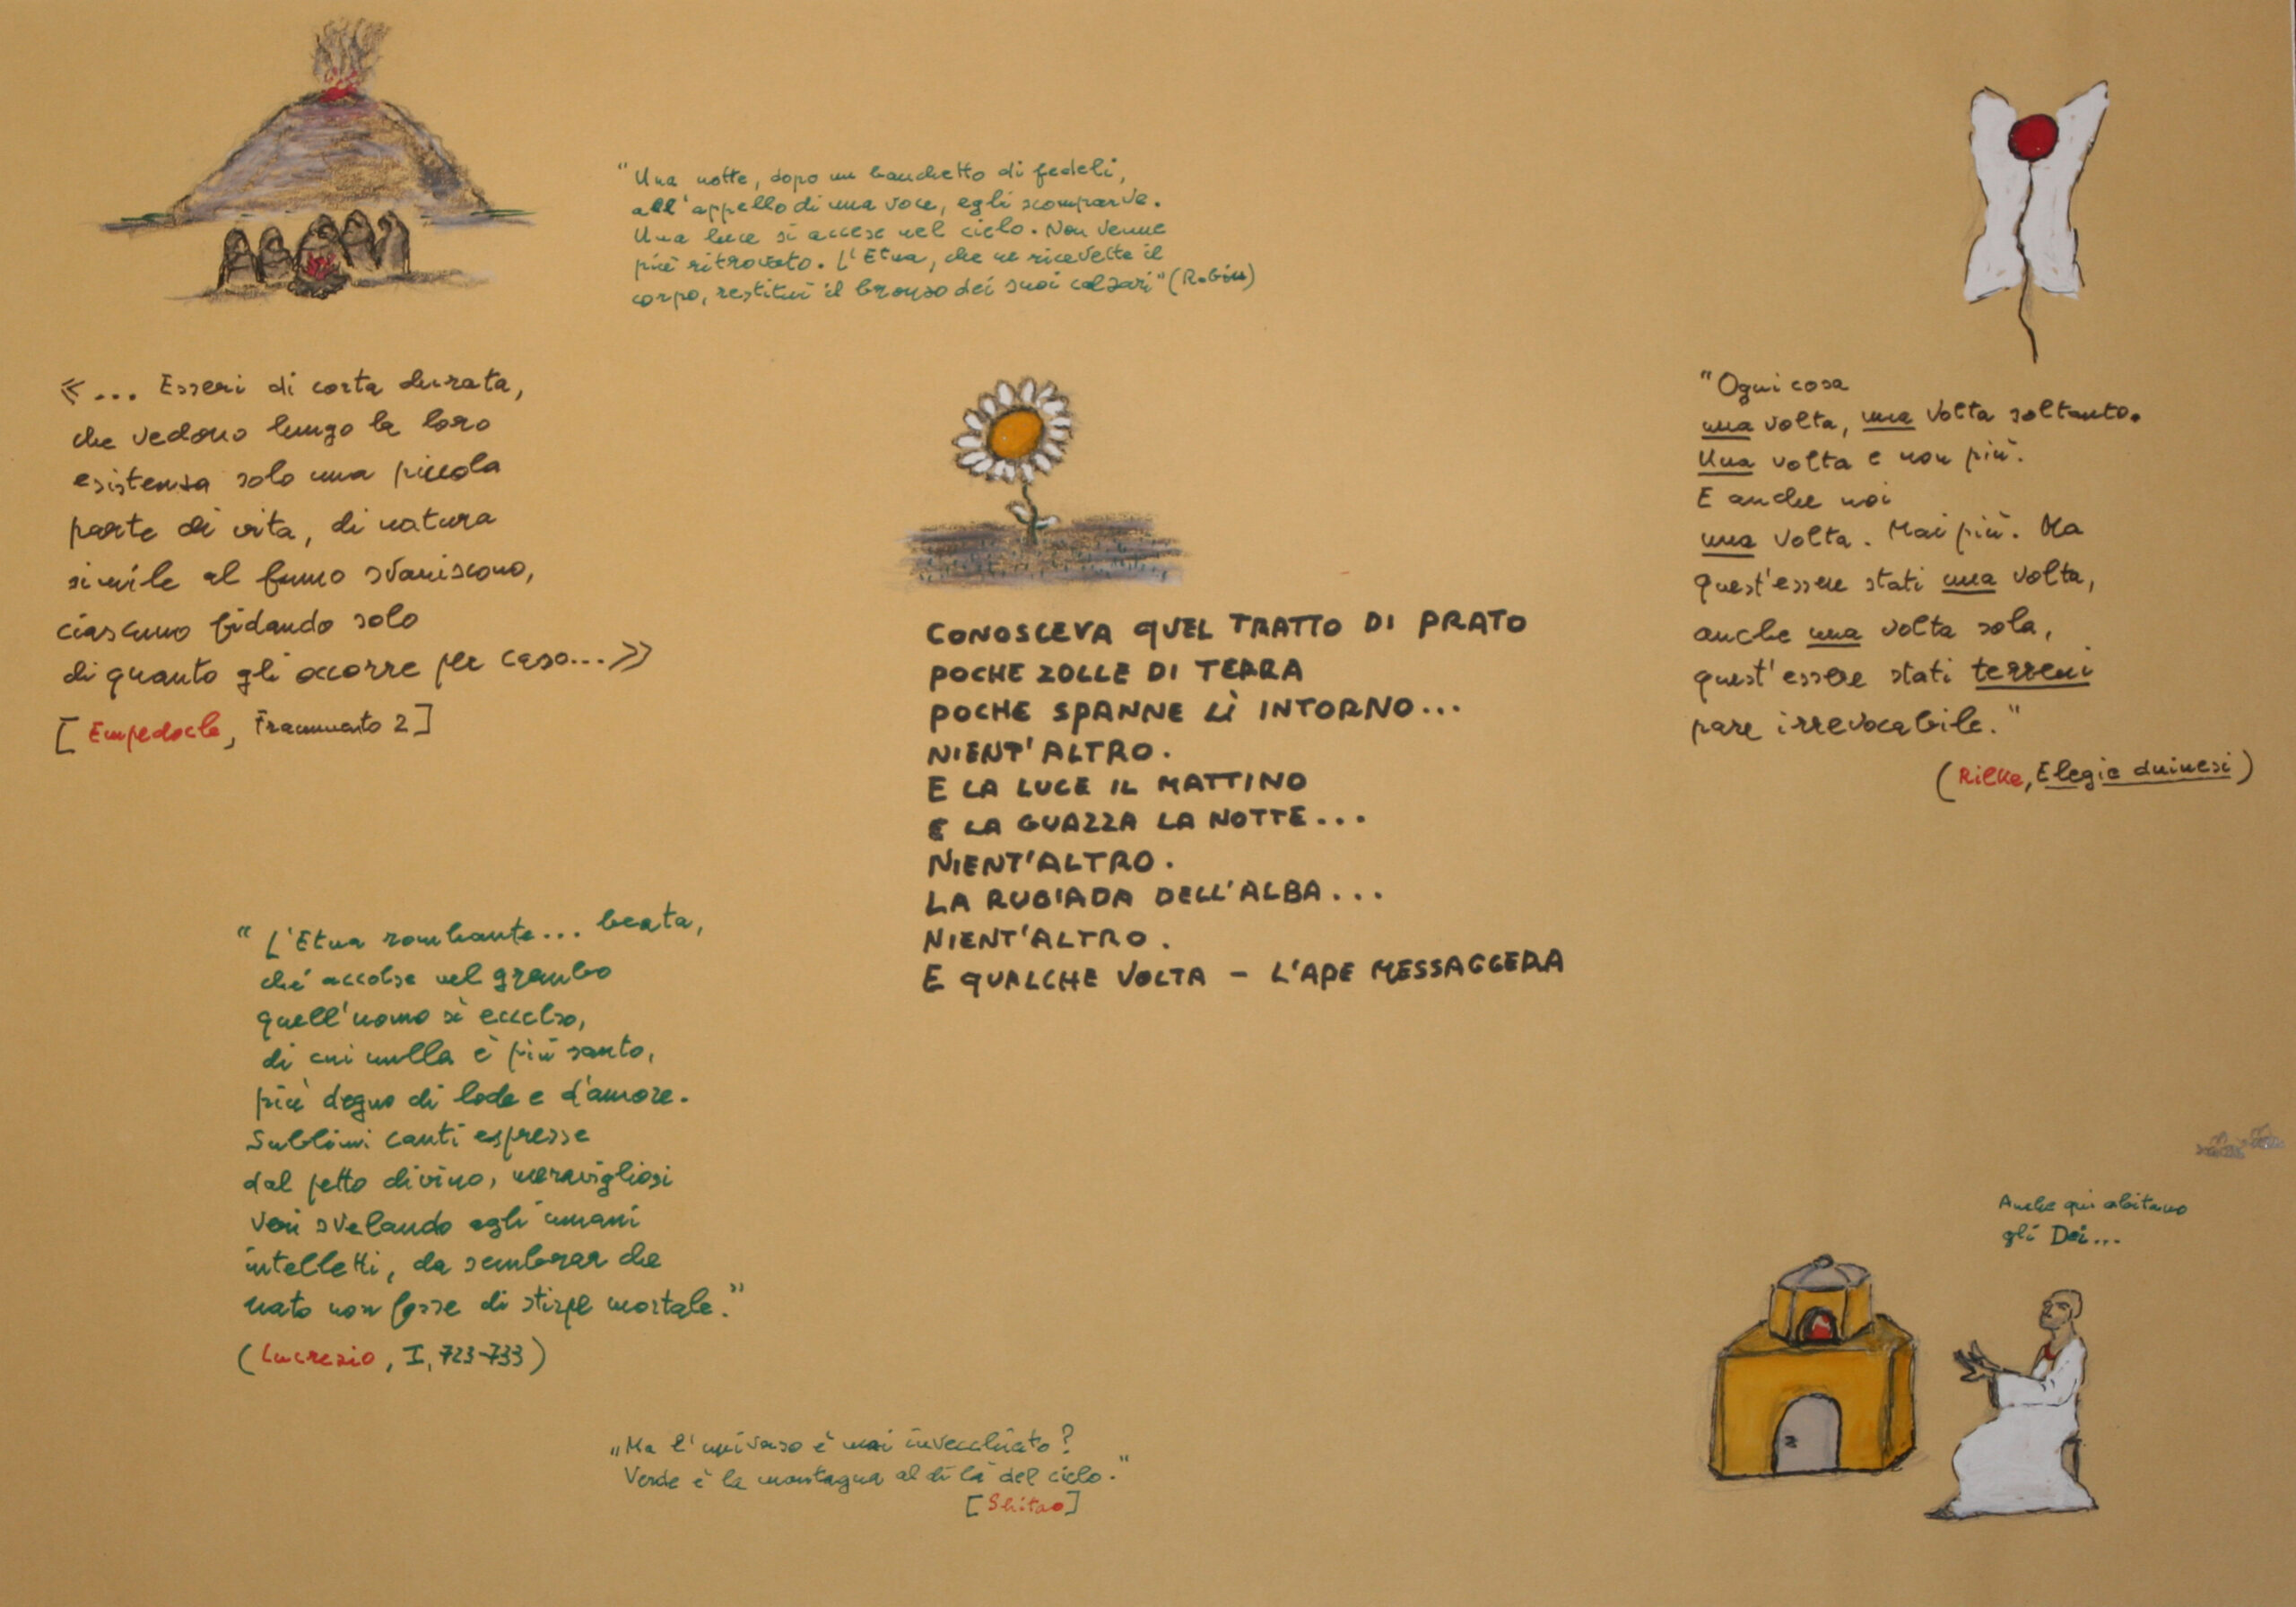 "Una notte, dopo un banchetto di fedeli,
all'appello di una voce, egli scomparve.
Una luce si accese nel cielo. Non venne
più ritrovato. L'Etna, che ne ricevette il
corpo, restituì il bronzo dei suoi calzari" (Robin)
«... Esseri di corta durata,
che vedono lungo la loro
esistenza solo una piccola
parte di vita, di natura
simile al fumo svaniscono,
ciascuno fidando solo
di quanto gli occorre per caso...»
[Empedocle, Frammento 2]
"Ogni cosa
una volta, una volta soltanto.
Una volta e non più.
E anche noi
una volta. Mai più. Ma
quest'essere stati una volta,
anche una volta sola,
quest'essere stati terreni
pare irrevocabile."
(Rilke, Elegie duinesi)
CONOSCEVA QUEL TRATTO DI PRATO
POCHE ZOLLE DI TERRA
POCHE SPANNE LÌ INTORNO...
NIENT'ALTRO.
E LA LUCE IL MATTINO
E LA GUAZZA LA NOTTE...
NIENT'ALTRO.
LA RUGIADA DELL'ALBA...
NIENT'ALTRO.
E QUALCHE VOLTA - L'APE MESSAGGERA
"L'Etna rombante... beata,
ché accolse nel grembo
quell'uomo sì eccelso,
di cui nulla è più santo,
più degno di lode e d'amore.
Sublimi canti espresse
dal petto divino, meravigliosi
veri svelando agli umani
intelletti, da sembrar che
nato non fosse di stirpe mortale."
(Lucrezio, I, 723-733)
"Ma l'universo è mai invecchiato?
Verde è la montagna al di là del cielo."
[Shitao]
Anche qui abitano
gli Dei...